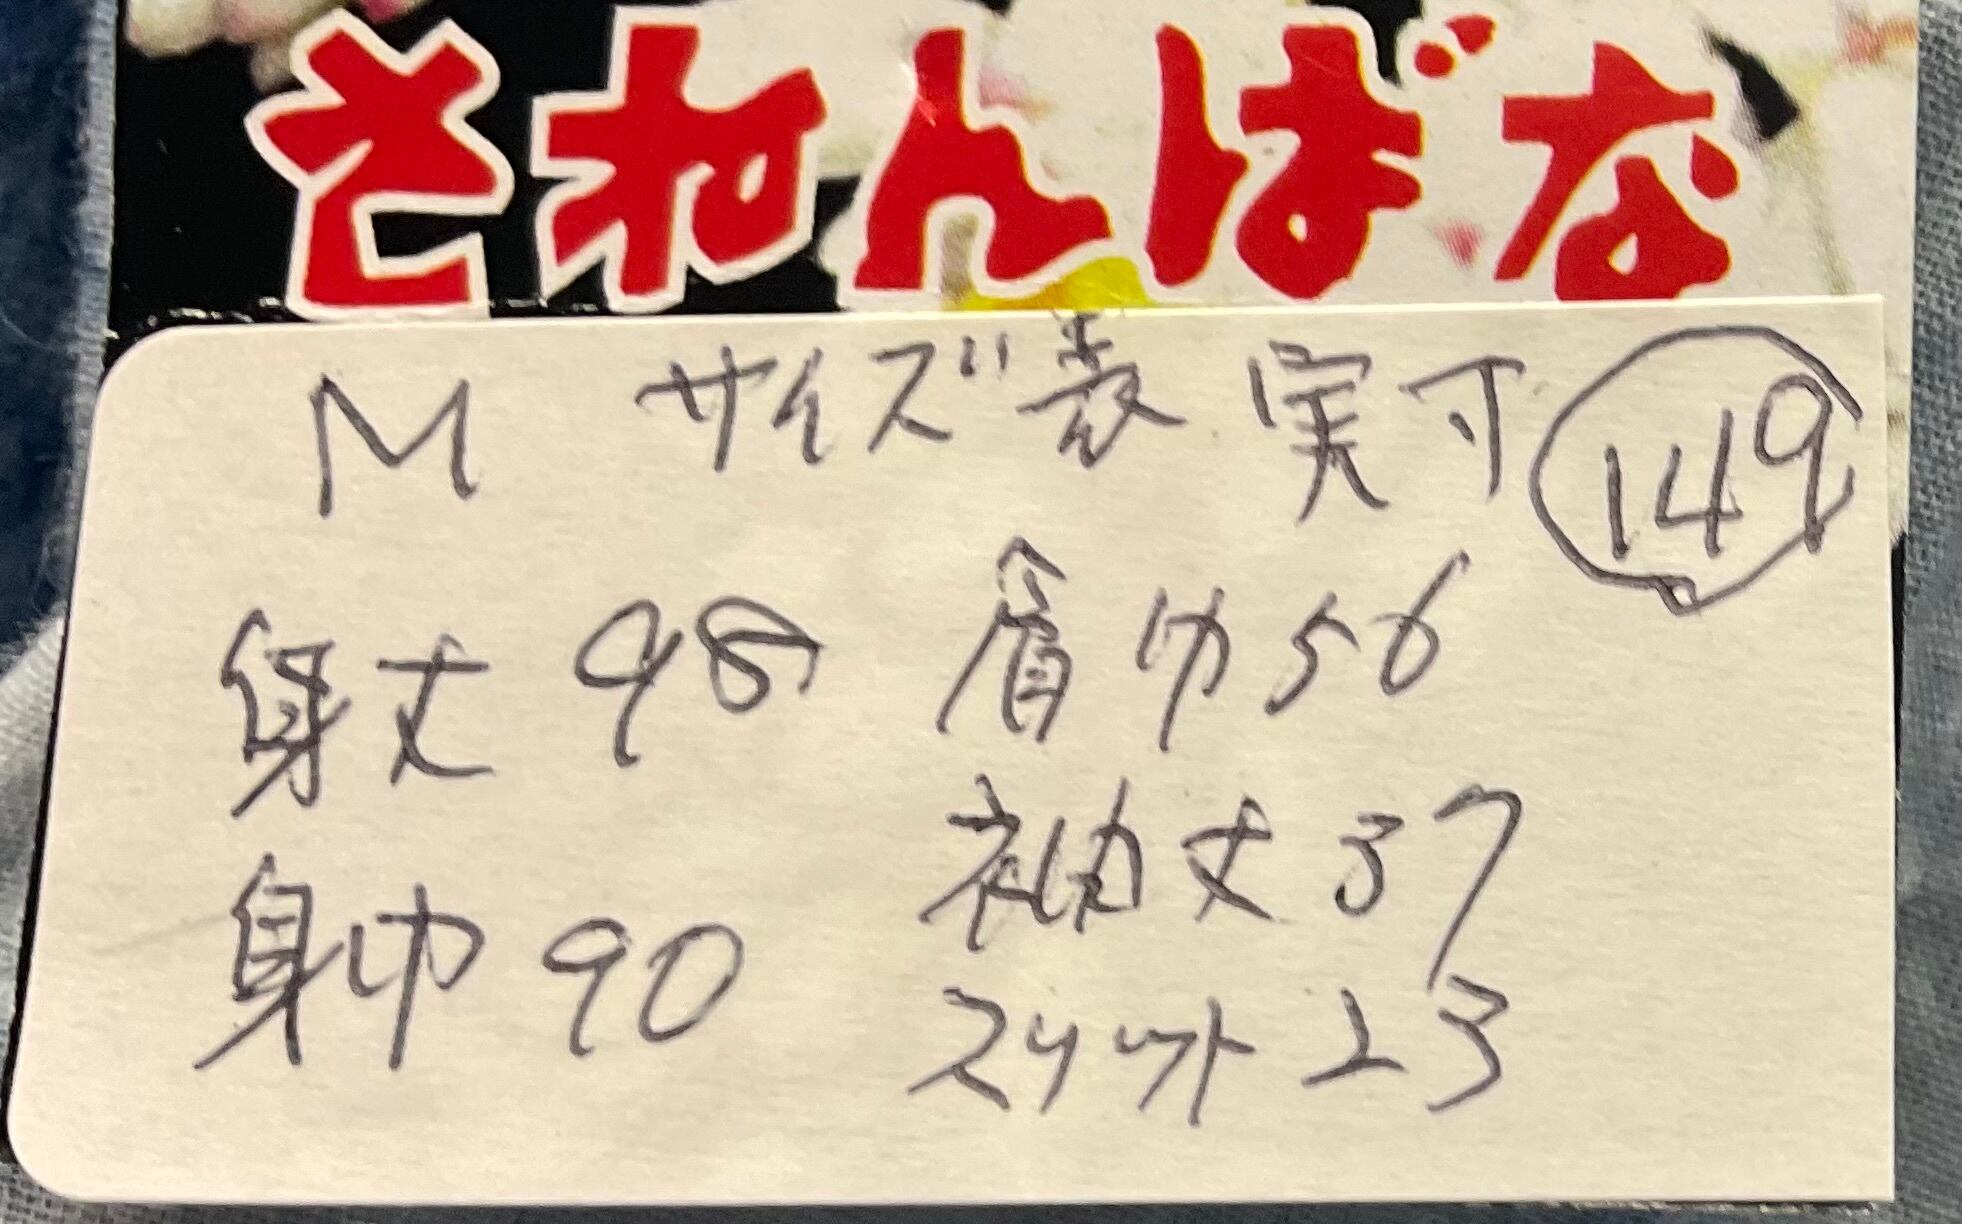 されんばな
M サイズ表 実寸 149
身丈 98 肩巾 56
袖丈 37
身巾 90
スリット 23